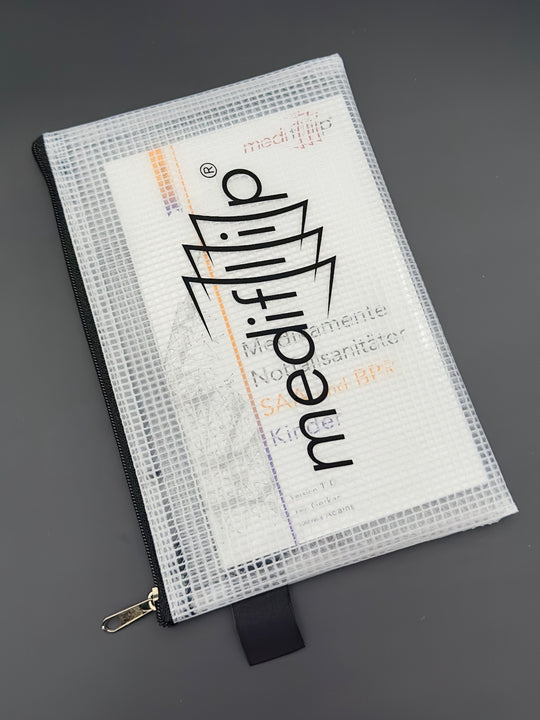 medifliip®
medifliip
Medikamente
Notfallsanitäter
SAA und BPR
Kinder
Version 1.0